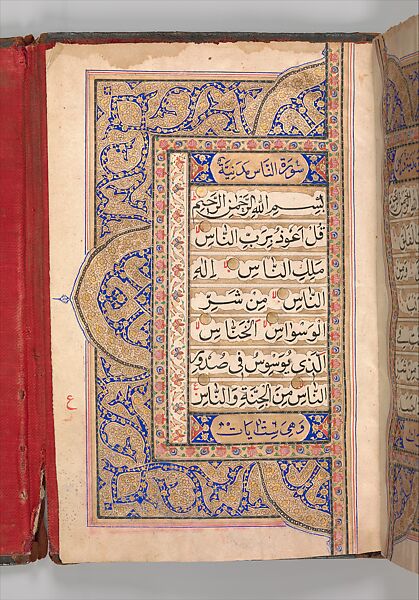 سورة الناس مدنية
بسم الله الرحمن الرحيم
قل اعوذ برب الناس
ملك الناس اله
الناس من شر
الوسواس الخناس
الذى يوسوس فى صدور
الناس من الجنة والناس
وهى ست ايات
ع